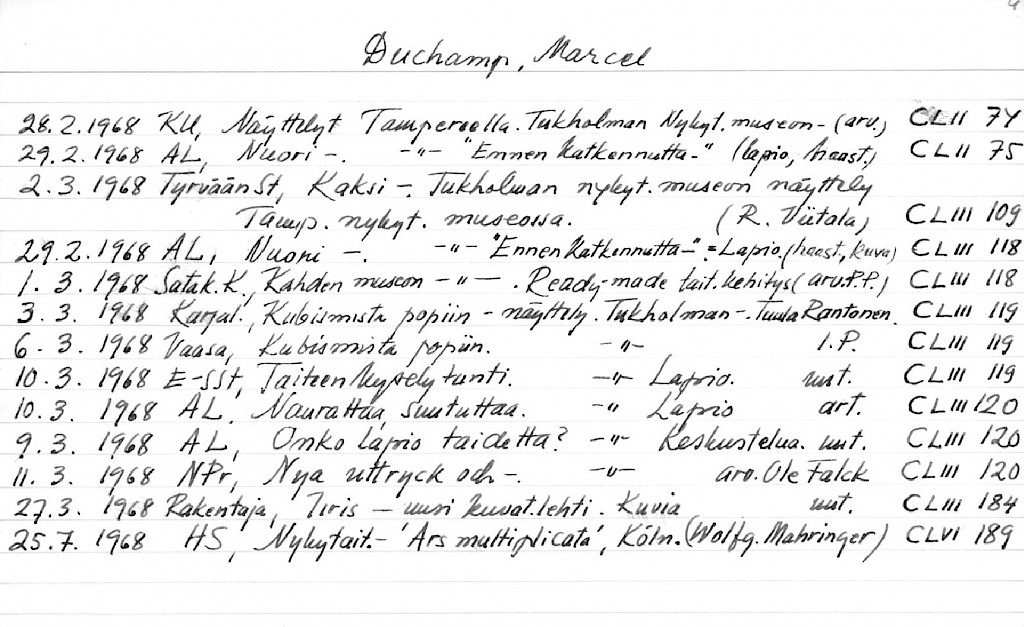 Duchamp, Marcel
28.2.1968 KU, Näyttelyt Tampereella. Tukholman Nykyt. museon - (arv.) CLII 74
29.2.1968 AL, Nuori -. -"- "Ennen katkennutta-" (lapio, haast.) CLII 75
2.3.1968 TyrväänSt, Kaksi -. Tukholman nykyt. museon näyttely
Tamp. nykyt. museossa. (R. Viitala) CLIII 109
29.2.1968 AL, Nuori -. -"- "Ennen katkennutta-" = Lapio. (haast, kuva) CLIII 118
1. 3. 1968 Satak.K, Kahden museon -"-. Ready-made tait. kehitys (arv. P.P.) CLIII 118
3. 3. 1968 Karjal., Kubismista popiin - näyttely. Tukholman -. Tuula Rantonen. CLIII 119
6. 3. 1968 Vaasa, Kubismista popiin. -"- I.P. CLIII 119
10.3. 1968 E-SSt, Taiteen kypsly tunti. -"- Lapio. uut. CLIII 119
10.3. 1968 AL, Naurattaa, suututtaa. -"- Lapio art. CLIII 120
9.3. 1968 AL, Onko lapio taidetta? -"- Keskustelua. uut. CLIII 120
11.3. 1968 NPr, Nya uttryck och -. -"- arv. Ole Falck CLIII 120
27.3. 1968 Rakentaja, Iiris - uusi kuvat.lehti. Kuvia uut. CLIII 184
25.7. 1968 HS, Nykytait.- 'Ars multiplicata', Köln. (Wolfg. Mahringer) CLVI 189